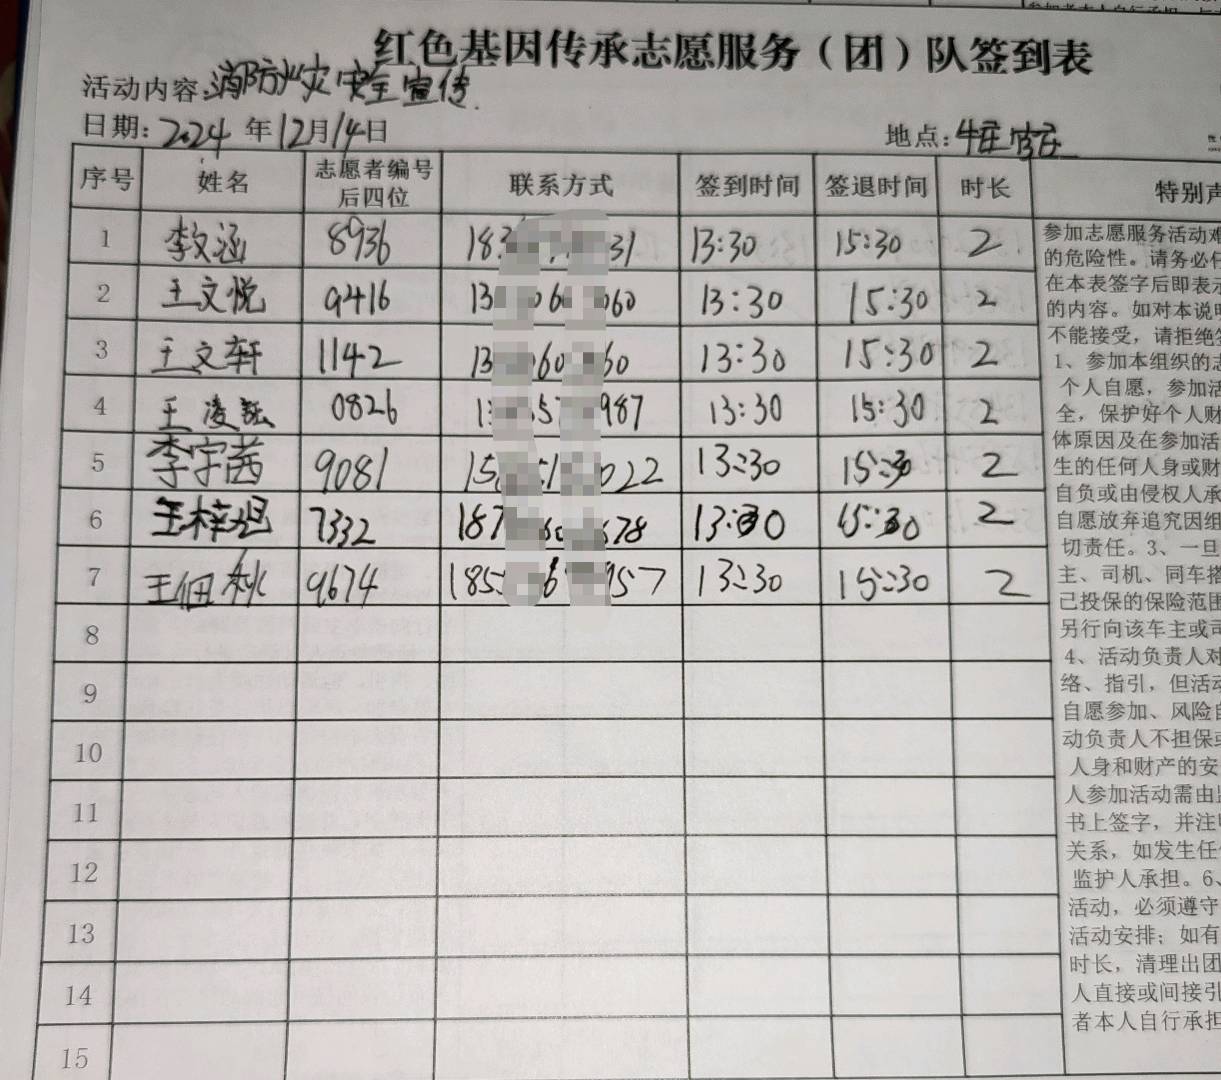 红色基因传承志愿服务（团）队签到表
活动内容:消防火灾安全宣传
日期:2024年12月14日 地点:
序号 姓名 志愿者编号后四位 联系方式 签到时间 签退时间 时长 特别声
1 李文涵 8936 183 31 13:30 15:30 2
2 王文悦 9416 13 06 060 13:30 15:30 2
3 王文轩 1142 13 060 60 13:30 15:30 2
4 王凌 0826 1 57 987 13:30 15:30 2
5 李宇茜 9081 15 1 022 13:30 15:30 2
6 王梓 7332 187 60 678 13:30 15:30 2
7 王佃秋 9674 185 6 957 13:30 15:30 2
8
9
10
11
12
13
14
15
参加志愿服务活动难
的危险性。请务必仔
在本表签字后即表示
的内容。如对本说明
不能接受，请拒绝签
1、参加本组织的志
个人自愿，参加活
全，保护好个人财
体原因及在参加活
生的任何人身或财
自负或由侵权人承
自愿放弃追究因组
切责任。3、一旦
主、司机、同车搭
己投保的保险范围
另行向该车主或司
4、活动负责人对
络、指引，但活动
自愿参加、风险自
动负责人不担保或
人身和财产的安
人参加活动需由监
书上签字，并注明
关系，如发生任何
监护人承担。6、
活动，必须遵守
活动安排；如有
时长，清理出团
人直接或间接引
者本人自行承担